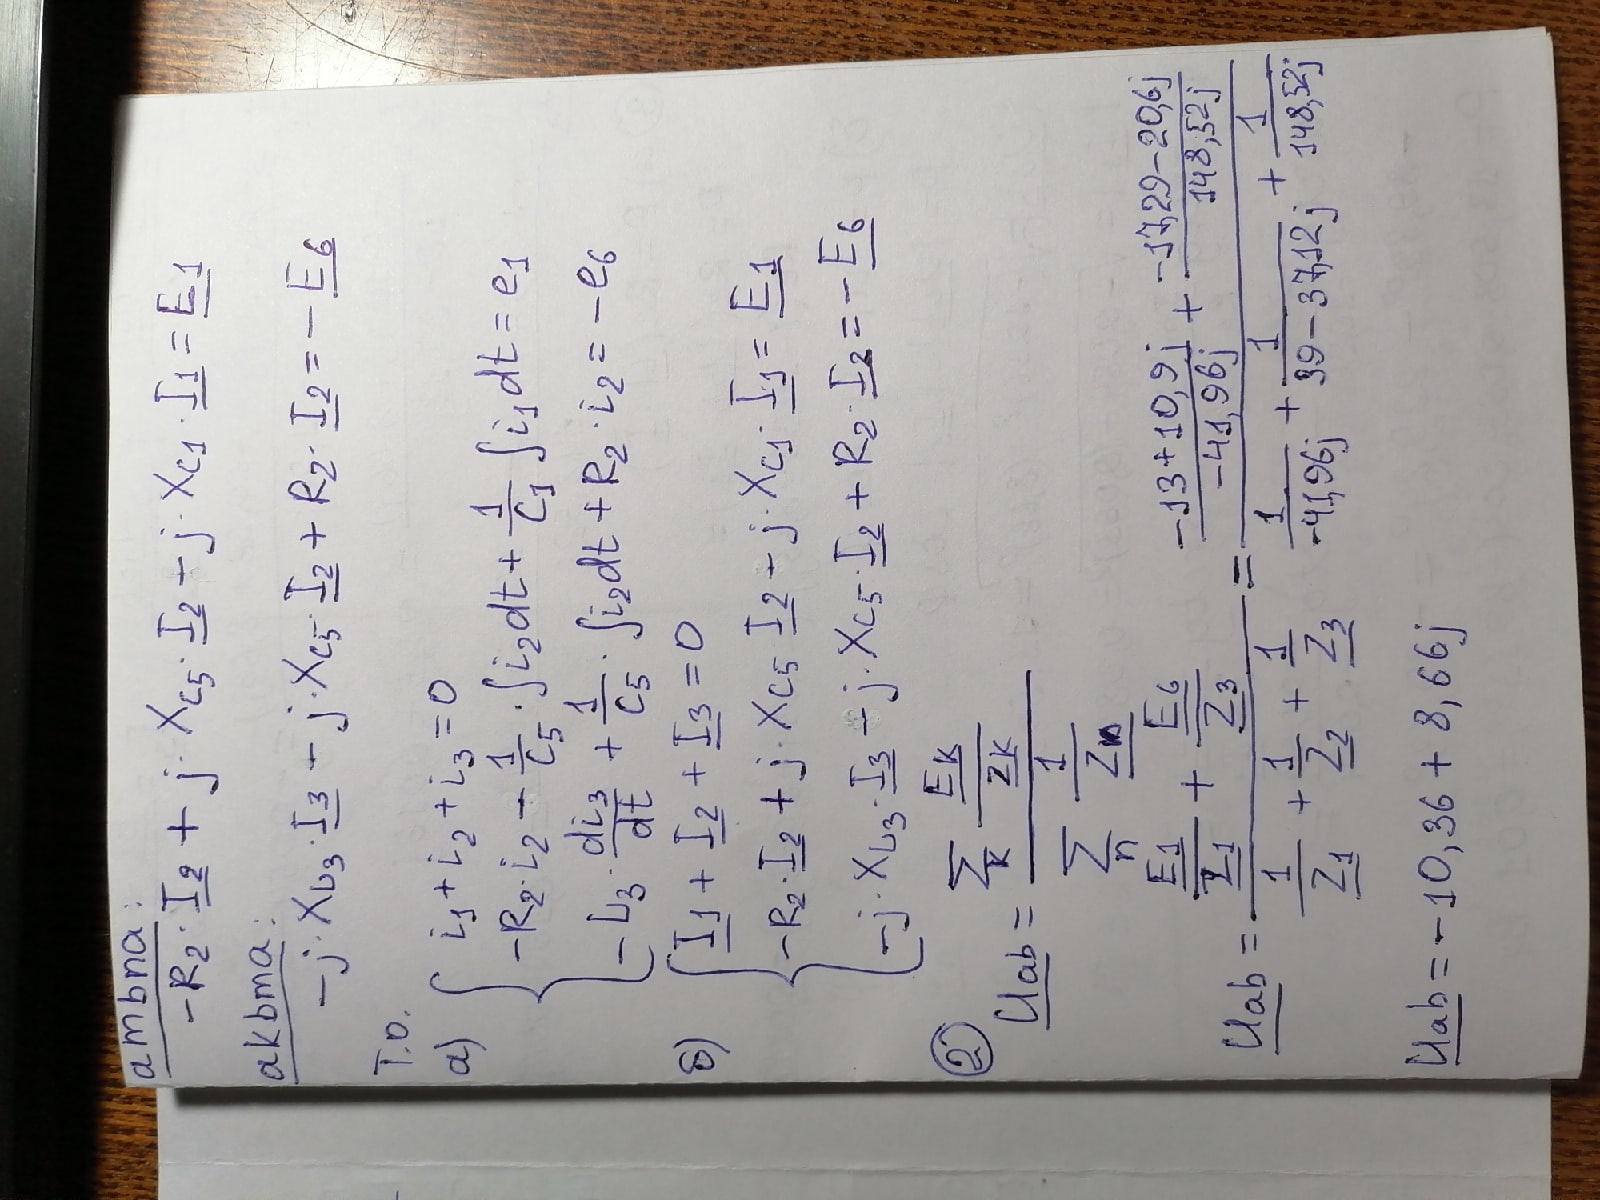 ambna:
-R₂·I₂ + j·X_C5·I₂ - j·X_C1·I₁ = E₁
akbma:
-j·X_L3·I₃ - j·X_C5·I₂ + R₂·I₂ = -E₆
Т.о.
а) { i₁ + i₂ + i₃ = 0
-R₂·i₂ - 1/C₅·∫i₂dt + 1/C₁∫i₁dt = e₁
-L₃·di₃/dt + 1/C₅·∫i₂dt + R₂·i₂ = -e₆
б) { I₁ + I₂ + I₃ = 0
-R₂·I₂ + j·X_C5·I₂ - j·X_C1·I₁ = E₁
-j·X_L3·I₃ - j·X_C5·I₂ + R₂·I₂ = -E₆
② Uab = (∑k Ek/Zk)/(∑n 1/Zn)
Uab = (E₁/Z₁ + E₆/Z₃)/(1/Z₁ + 1/Z₂ + 1/Z₃) = ((-13+10,9j)/(-41,96j) + (-17,29-20,6j)/(148,52j))/(1/(-41,96j) + 1/(39-37,12j) + 1/(148,52j))
Uab = -10,36 + 8,66j